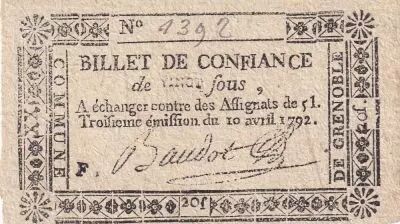 No 4392
BILLET DE CONFIANCE
de VINGT sous,
A échanger contre des Assignats de 5 l.
Troisieme émission du 10 avril 1792.
F. Baudot
COMMUNE
DE GRENOBLE
20ſ